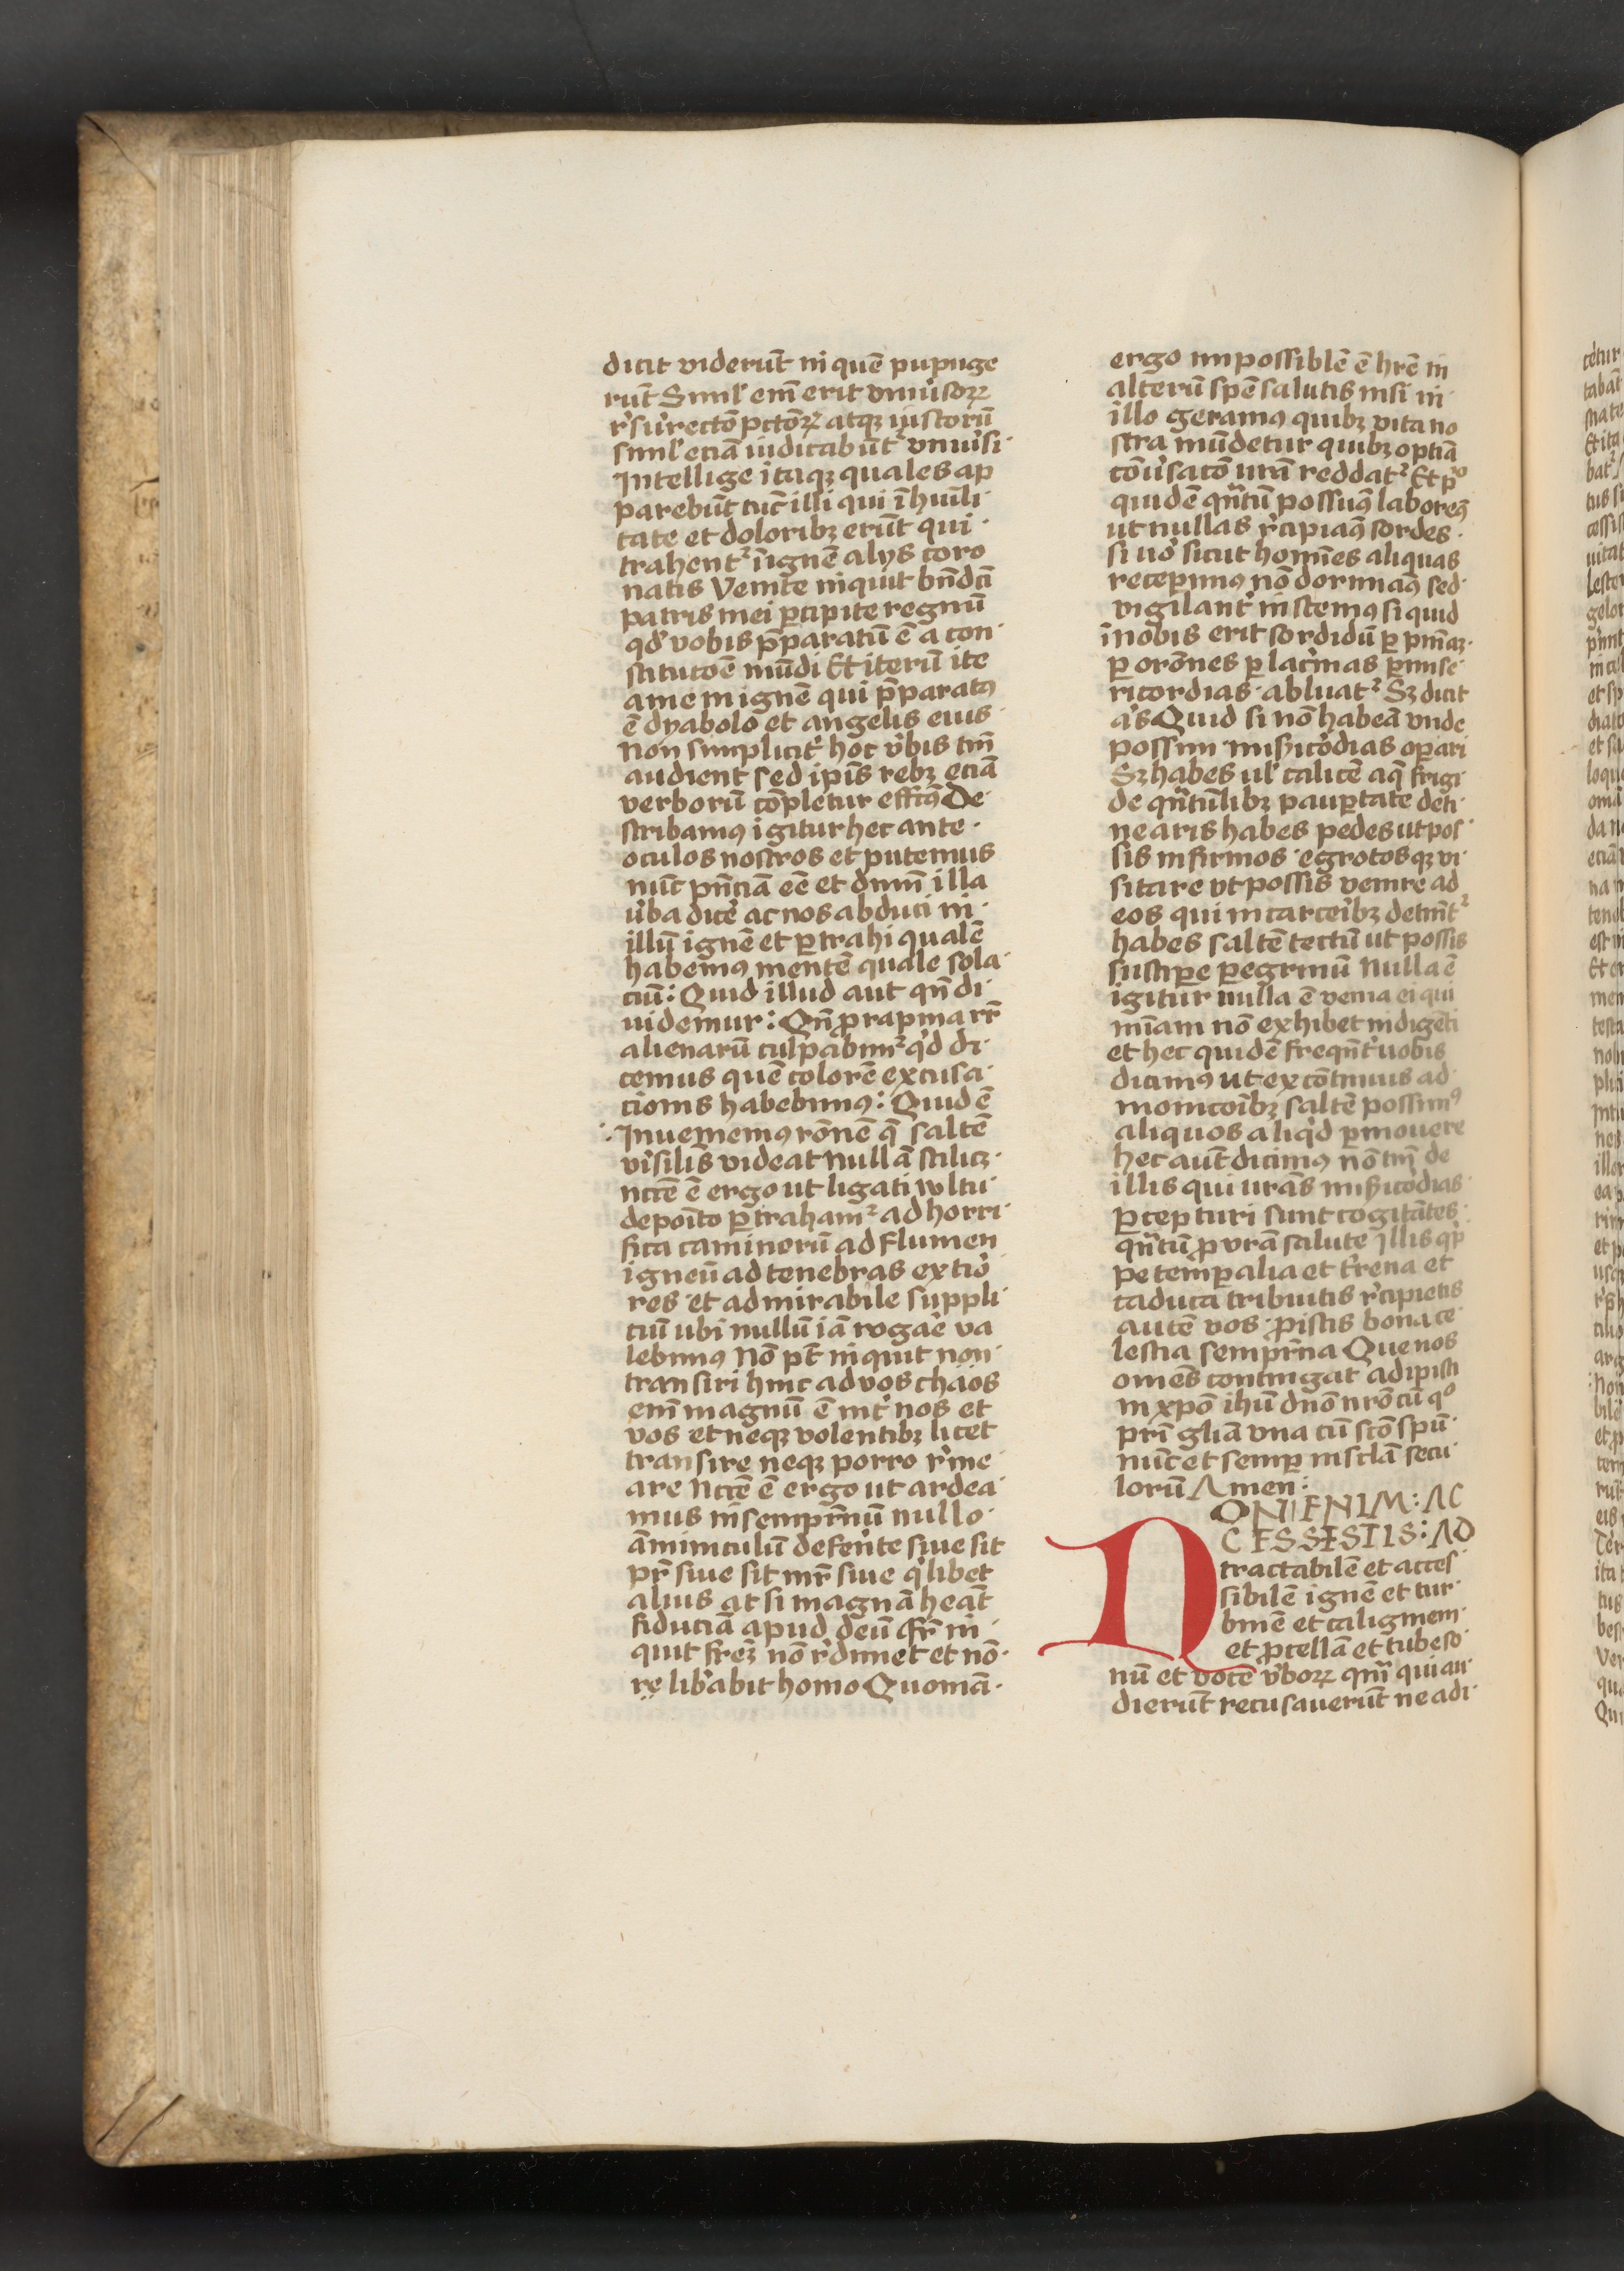 dicit viderūt in quē pupuge
rūt Simil' em̄ erit vniūsoꝝ
r̄surectō pctōꝝ atqꝫ iustorū
simil' eciā iudicabūt² vniūsi·
Intellige itaqꝫ quales ap
parebūt tūc illi qui ī huīli·
tate et doloribꝫ erūt qui·
trahent² īignē alys coro
natis Venite inquit bn̄dcī
patris mei ꝑcipite regnū
qd' vobis p̄paratū ē a con·
stitutōē mūdi Et iterū ite
a me in ignē qui p̄paratꝰ
ē dyabolo et angelis eius·
Non simplicit̄ hoc v̄bis tm̄
audient sed ipīs rebꝫ eciā
verborū cōpletur effctꝰ De·
scribamꝰ igitur hec ante·
oculos nostros et putemus
nūc pn̄ciā eē et dnm̄ illa
v̄ba dicē ac nos abduci in·
illū ignē et ꝑtrahi qualē
habeīmꝰ mentē quale sola·
ciū: Quid illud aut qn̄ di·
uidemur: Qn̄ ꝓ rapina rr̄
alienarū culpabim² qd di·
cemus quē colorē excusa·
cionis habebimꝰ: Quid ē
Inueniemꝰ rōnē q̄ saltē
v̄isilis videat Nullā scilicꝫ·
nctē ē ergo ut ligati wltu·
depoīto ꝑtraham² ad horri·
fica caminorū ad flumen
igneū ad tenebras extīo
res et admirabile suppli·
ciū ubi nullū iā rogāe va
lebimꝰ Nō pt̄ inquit non·
transiri hinc ad vos chaos
em̄ magnū ē int̄ nos et
vos et neqꝫ volentibꝫ licet
transire neqꝫ porro r̄me
are Nctē ē ergo ut ardea·
mus in sempr̄nū nullo·
āminiculū deferīte siue sit
pr̄ siue sit mr̄ siue q̄libet
alius at si magnā heāt
fiduciā apud deū fr̄ in·
quit freꝫ nō r̄dimet et nō·
re lib̄abit homo Quoniā·
ergo impossiblē ē hrē in
alterū spē salutis nisi in·
illo geramꝰ quibꝫ vita no
stra mūdetur quibꝫ optīa
cōūsatō ur̄a reddat² Et pº
quidē qn̄tū possuꝰ laboreꝰ
ut nullas r̄cipiaꝰ sordes·
si uō sicut homīes aliquas
receperimꝰ nō dormiāꝰ sed·
vigilant̄ instemꝰ si quid
īnobis erit sordidū ꝑ pnīaꝫ·
ꝑ orōnes ꝑ lac̄mas ꝑ mise·
ricordias abluat² Sꝫ dicit
ās Quid si nō habeā vnde
possim misicōdias opari
Sꝫ habes ul' calicē aq̄ frigi·
de qn̄tūlibꝫ paupertate deti·
nearis habes pedes ut pos·
sis infirmos egrotosqꝫ vi·
sitare vt possis venire ad
eos qui in carceībꝫ detinēt²
habes saltē tectū ut possis
suscipe ꝑegrinū Nulla ē
igitur nulla ē venia ei qui
mīam nō exhibet indigēti
et hec quidē freqn̄t̄ uobis
dicimꝰ ut ex cōtinuis ad
monicoībꝫ saltē possimꝰ
aliquos aliqd ꝑmouere
hec aut̄ dicimꝰ nō tm̄ de
illis qui ur̄as misicōdias
ꝑcepturi sunt cogitātes
qn̄tū ꝓ vr̄a salute Illis q̄p
pe temp̄alia et t̄rena et
caduca tribuitis r̄cipietis
autē vos ꝓ istis bona ce
lestia sempr̄na Que nos
om̄es contingat adipisci
in xp̄o ihū dn̄o nr̄o cū qº
prī glīā vna cū scō spū
nūc et semp in sclā secu·
lorū Amen:
NON ENIM: AC
CESSISTIS: AD
tractabilē et acces
sibilē ignē et tur·
binē et caliginem·
et ꝓcellā et tube so·
nū et vocē v̄boꝝ qm̄ qui au·
dierūt recusauerūt ne adi·